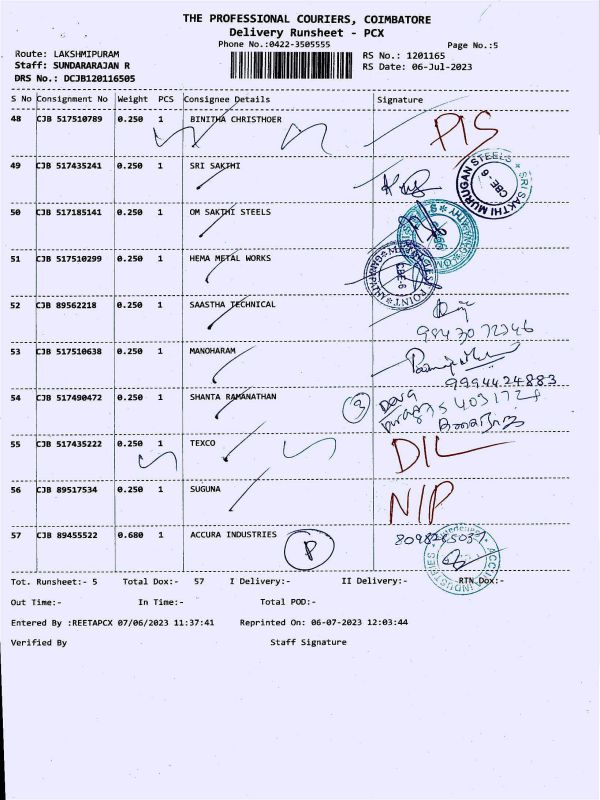 THE PROFESSIONAL COURIERS, COIMBATORE
Delivery Runsheet - PCX
Phone No.:0422-3505555
Page No.:5
Route: LAKSHMIPURAM
RS No.: 1201165
Staff: SUNDARARAJAN R
RS Date: 06-Jul-2023
DRS No.: DCJB120116505
S No Consignment No Weight PCS Consignee Details Signature
48 CJB 517510789 0.250 1 BINITHA CHRISTHOER PIS
49 CJB 517435241 0.250 1 SRI SAKTHI
SRI SAKTHI MURUGAN STEELS
CBE-6
50 CJB 517185141 0.250 1 OM SAKTHI STEELS
51 CJB 517510299 0.250 1 HEMA METAL WORKS
52 CJB 89562218 0.250 1 SAASTHA TECHNICAL
9843072346
53 CJB 517510638 0.250 1 MANOHARAM
9994424883
54 CJB 517490472 0.250 1 SHANTA RAMANATHAN 3
55 CJB 517435222 0.250 1 TEXCO DIL
56 CJB 89517534 0.250 1 SUGUNA NIP
57 CJB 89455522 0.680 1 ACCURA INDUSTRIES P
ACCURA INDUSTRIES
Tot. Runsheet:- 5 Total Dox:- 57 I Delivery:- II Delivery:- RTN Dox:-
Out Time:- In Time:- Total POD:-
Entered By :REETAPCX 07/06/2023 11:37:41 Reprinted On: 06-07-2023 12:03:44
Verified By Staff Signature